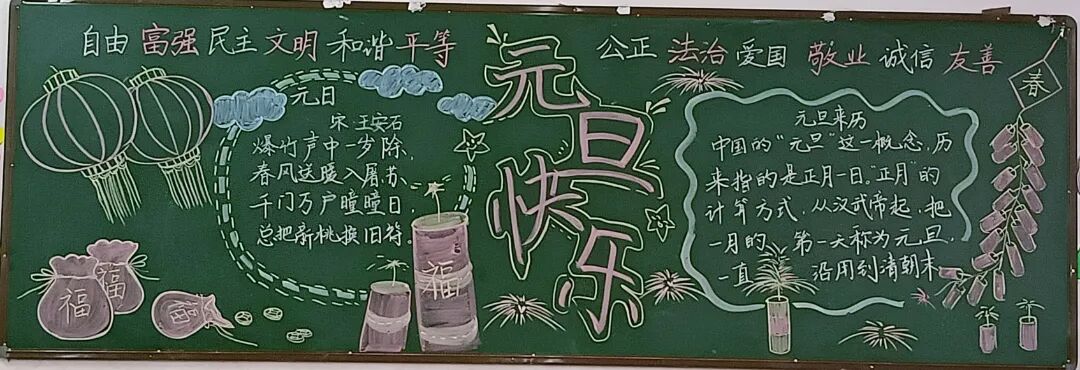 自由 富强 民主 文明 和谐 平等
公正 法治 爱国 敬业 诚信 友善
元旦快乐
元日
宋:王安石
爆竹声中一岁除,
春风送暖入屠苏.
千门万户曈曈日,
总把新桃换旧符。
元旦来历
中国的“元旦”这一概念,历
来指的是正月一日。“正月”的
计算方式,从汉武帝起,把
一月的 第一天称为元旦,
一直 沿用到清朝末
春
福
福
福
福